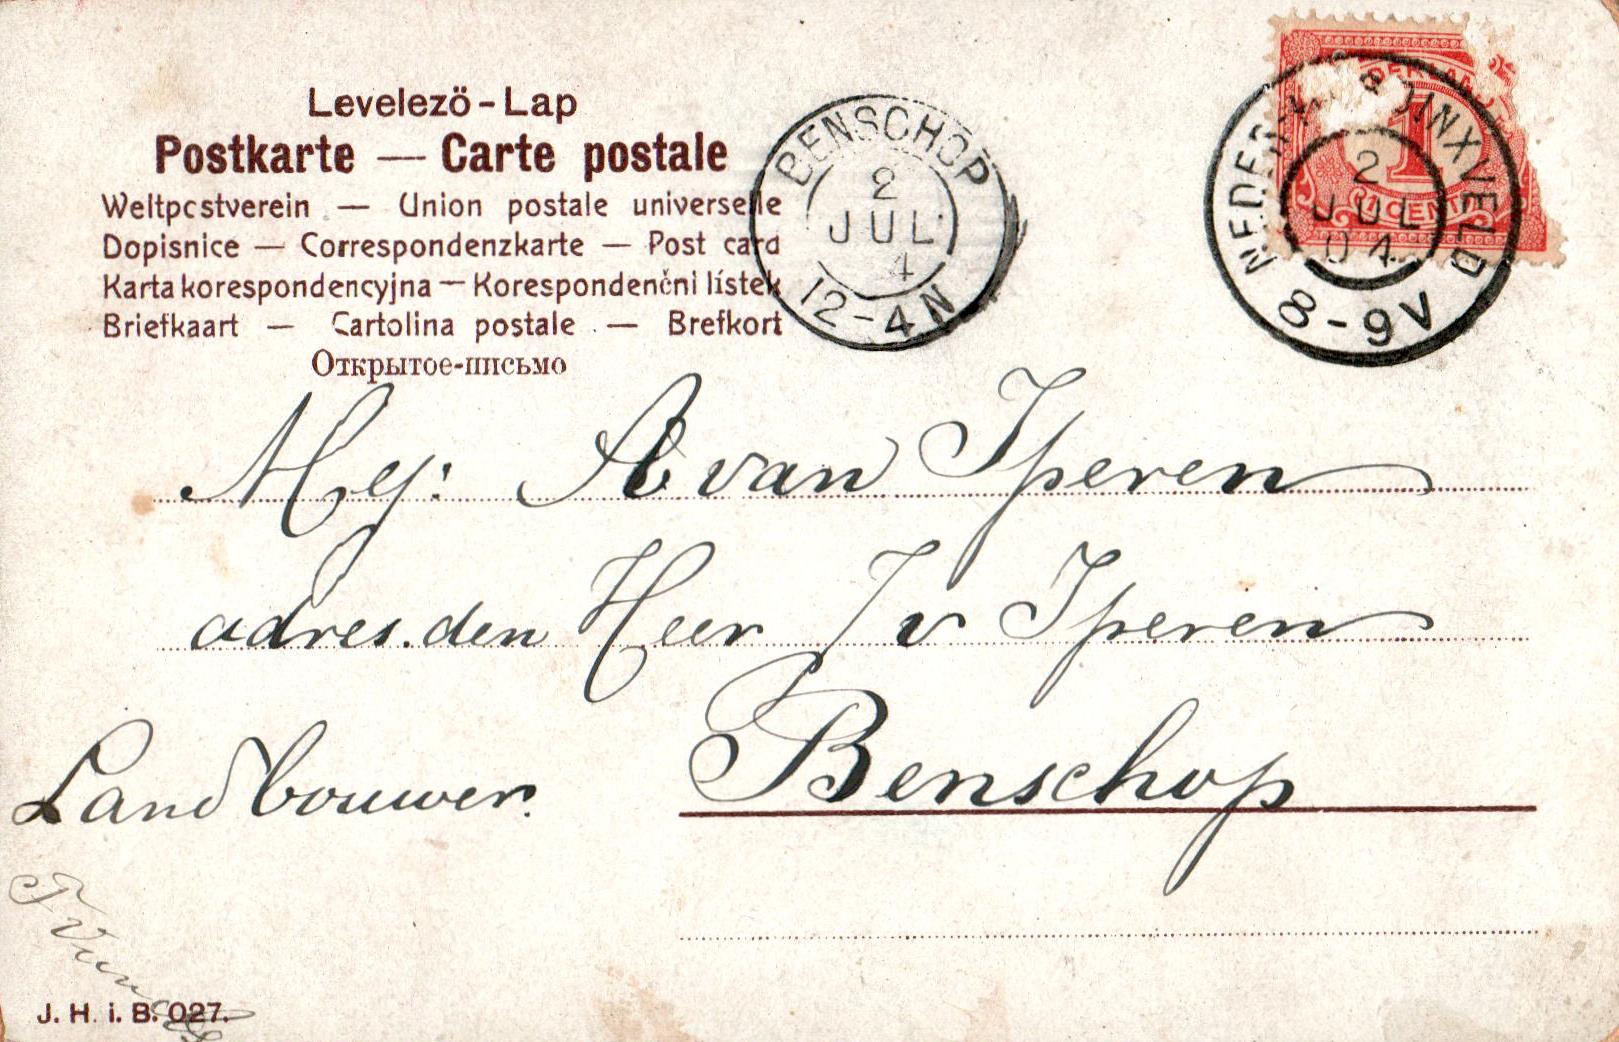 Levelező - Lap
Postkarte — Carte postale
Weltpcstverein — Union postale universelle
Dopisnice — Correspondenzkarte — Post card
Karta korespondencyjna — Korespondenční lístek
Briefkaart — Cartolina postale — Brefkort
Открытое-письмо
BENSCHOP
2
JUL
4
12-4N
1
1 CENT
2
JUL
04
8-9V
Mej: A van Iperen
adres. den Heer J v Iperen
Benschop
Landbouwer.
J. H. i. B. 027.